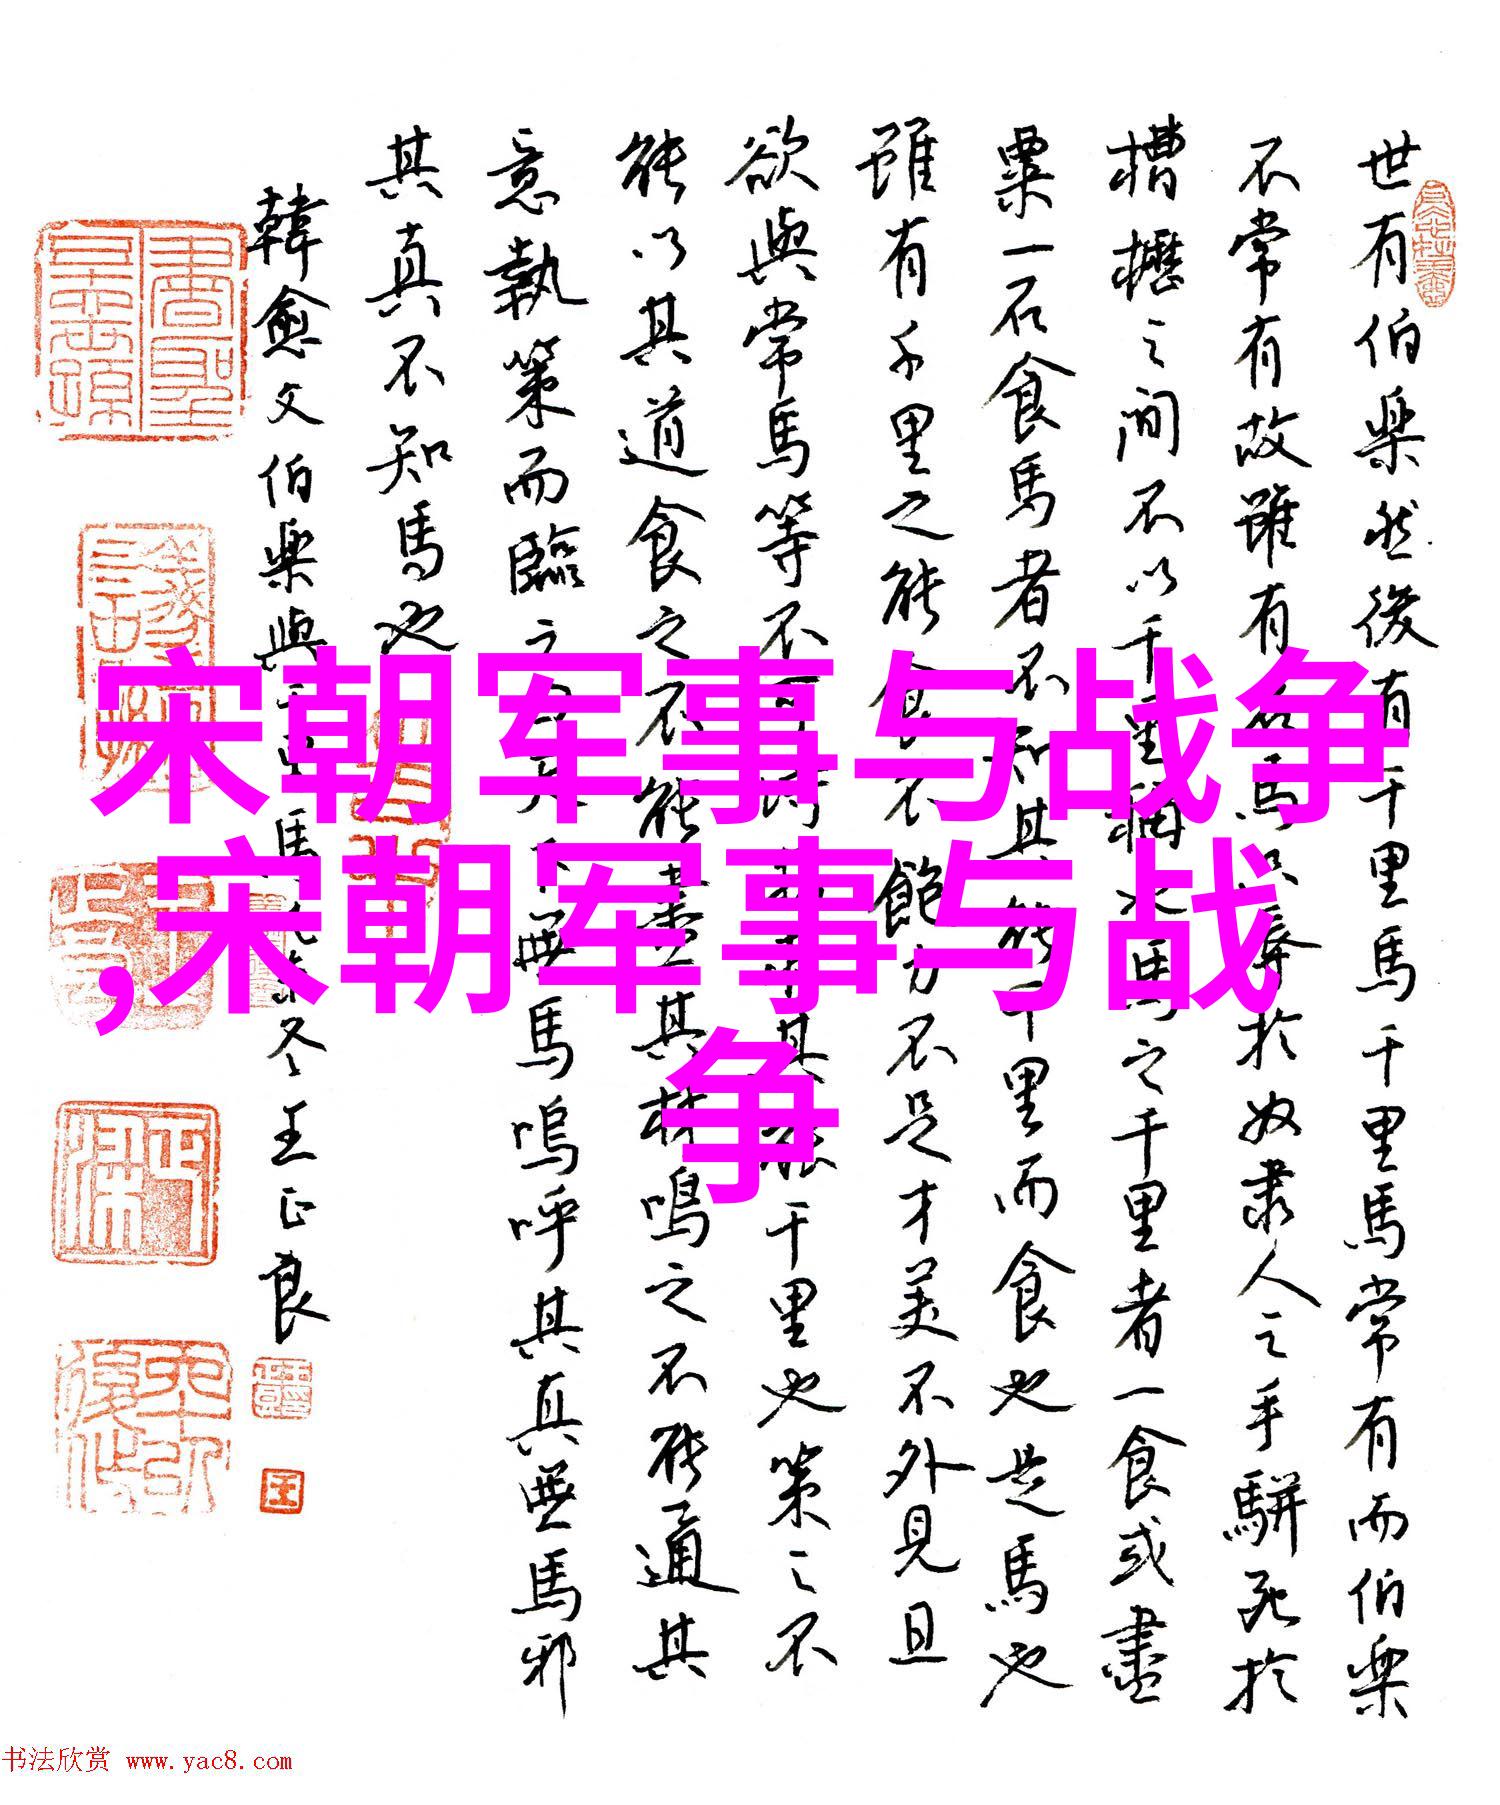 世有伯樂然後有千里馬千里馬常有而伯樂
不常有故雖有名馬只辱於奴隸人之手駢死於
槽櫪之間不以千里稱也馬之千里者一食或盡
粟一石食馬者不知其能千里而食也是馬也
雖有千里之能食不飽力不足才美不外見且
欲與常馬等不可其能千里也策之不
能以其道食之不能盡其材鳴之不能通其
意執策而臨之曰天下無馬嗚呼其真無馬邪
其真不知馬也
韓愈文伯樂與千里馬冬王正良
王
宋朝军事与战争
,宋朝军事与战
争
书法欣赏 www.yac8.com